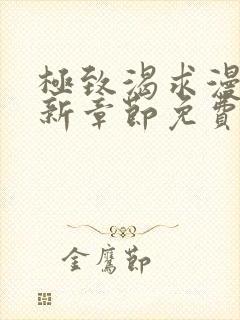 極致渴求漫
新章節免費
金鷹節